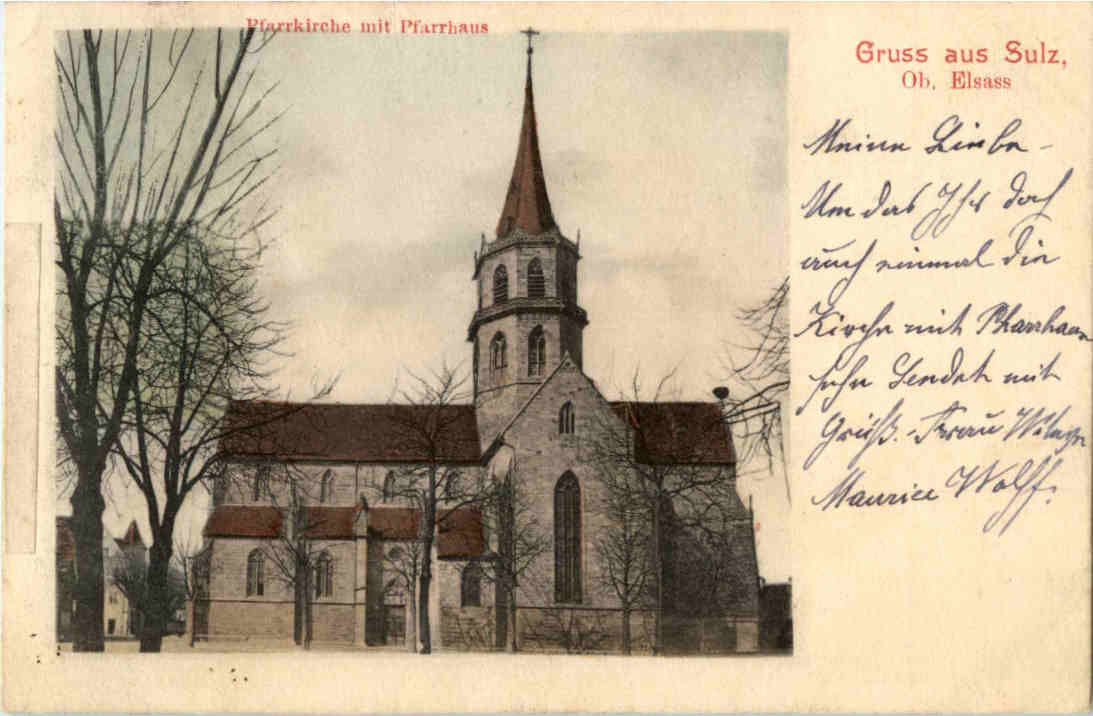 Pfarrkirche mit Pfarrhaus
Gruss aus Sulz,
Ob. Elsass
Meine Liebe -
Um das Ihr doch
auch einmal die
Kirche mit Pharrhaus
sehn Sendet mit
Grüß. - Frau
Maurice Wolff.